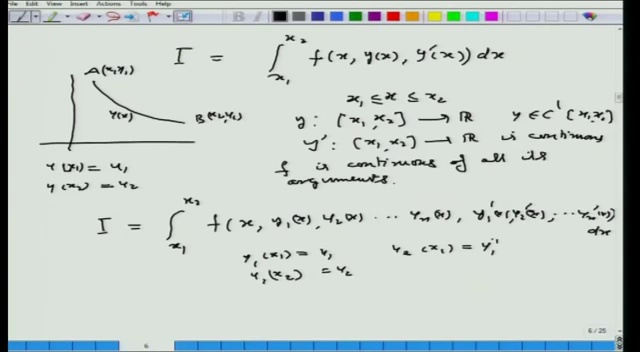 File Edit View Insert Actions Tools Help
I = ∫_{x₁}^{x₂} f(x, y(x), y'(x)) dx
A(x₁,y₁)
x₁ ≤ x ≤ x₂
y(x)
B(x₂,y₂)
y : [x₁,x₂] → ℝ y ∈ C¹[x₁,x₂]
y' : [x₁,x₂] → ℝ is continuous
f is continuous of all its
arguments.
y(x₁) = y₁
y(x₂) = y₂
I = ∫_{x₁}^{x₂} f(x, y₁(x), y₂(x) ... yₙ(x), y₁'(x), y₂'(x), ... yₙ'(x))
dx
y₁(x₁) = y₁ y₂(x₁) = y₁'
y₁(x₂) = y₂
6 / 25
6